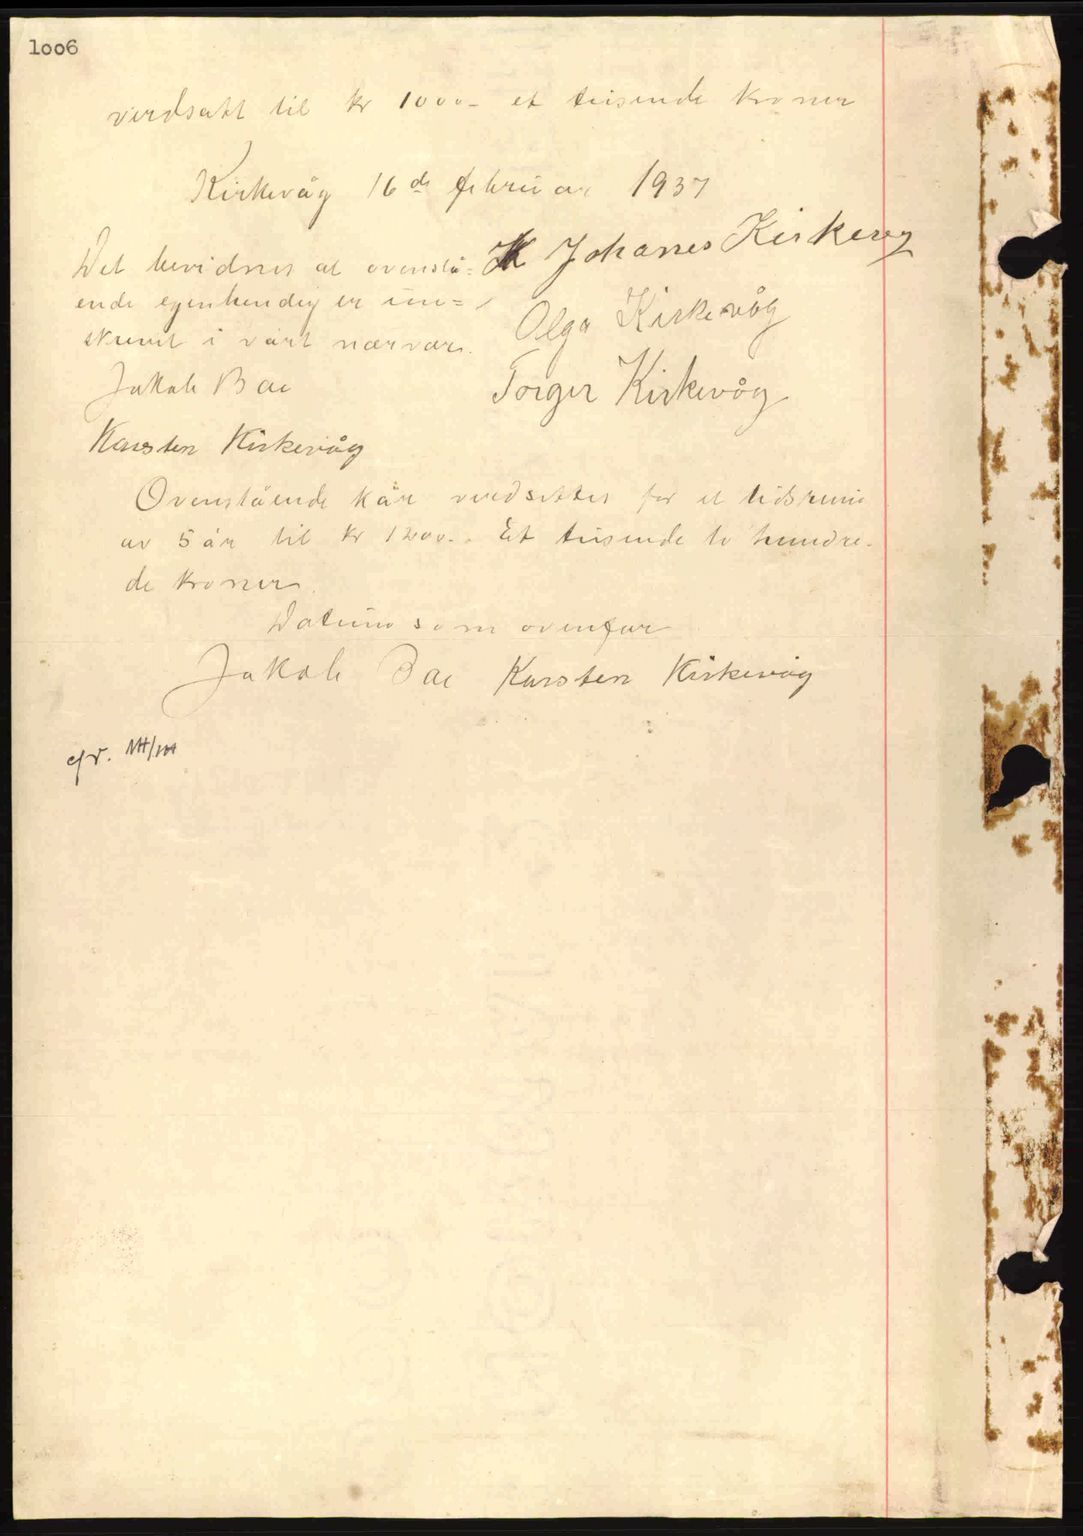 1006
verdsatt til kr 1000- et tusende kroner
Kirkevåg 16de februar 1937
Det bevidnes at ovenstå=
ende egenhendig er un=
skrevet i vårt nærvær.
Jakob Bae
Karsten Kirkevåg
Johanes Kirkevåg
Olga Kirkevåg
Torger Kirkevåg
Ovenstående kår verdsettes for et tidsrum
av 5 år til kr 1200-. Et tusende to hundre-
de kroner.
Datum som ovenfor
Jakob Bae Karsten Kirkevåg
cfr.